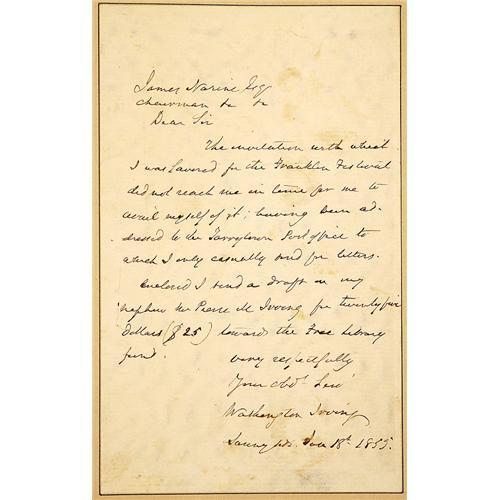 James Narine Esq
Chairman &c &c
Dear Sir
The invitation with which
I was favored for the Franklin Festival
did not reach me in time for me to
avail myself of it; having been ad-
dressed to the Tarrytown Post office to
which I only casually send for letters.
Enclosed I send a draft on my
nephew Mr Pierre M Irving for twenty five
dollars ($25) towards the Free Library
fund.
very respectfully
Your obdt Servt
Washington Irving
Sunnyside. Jan 18th 1855.